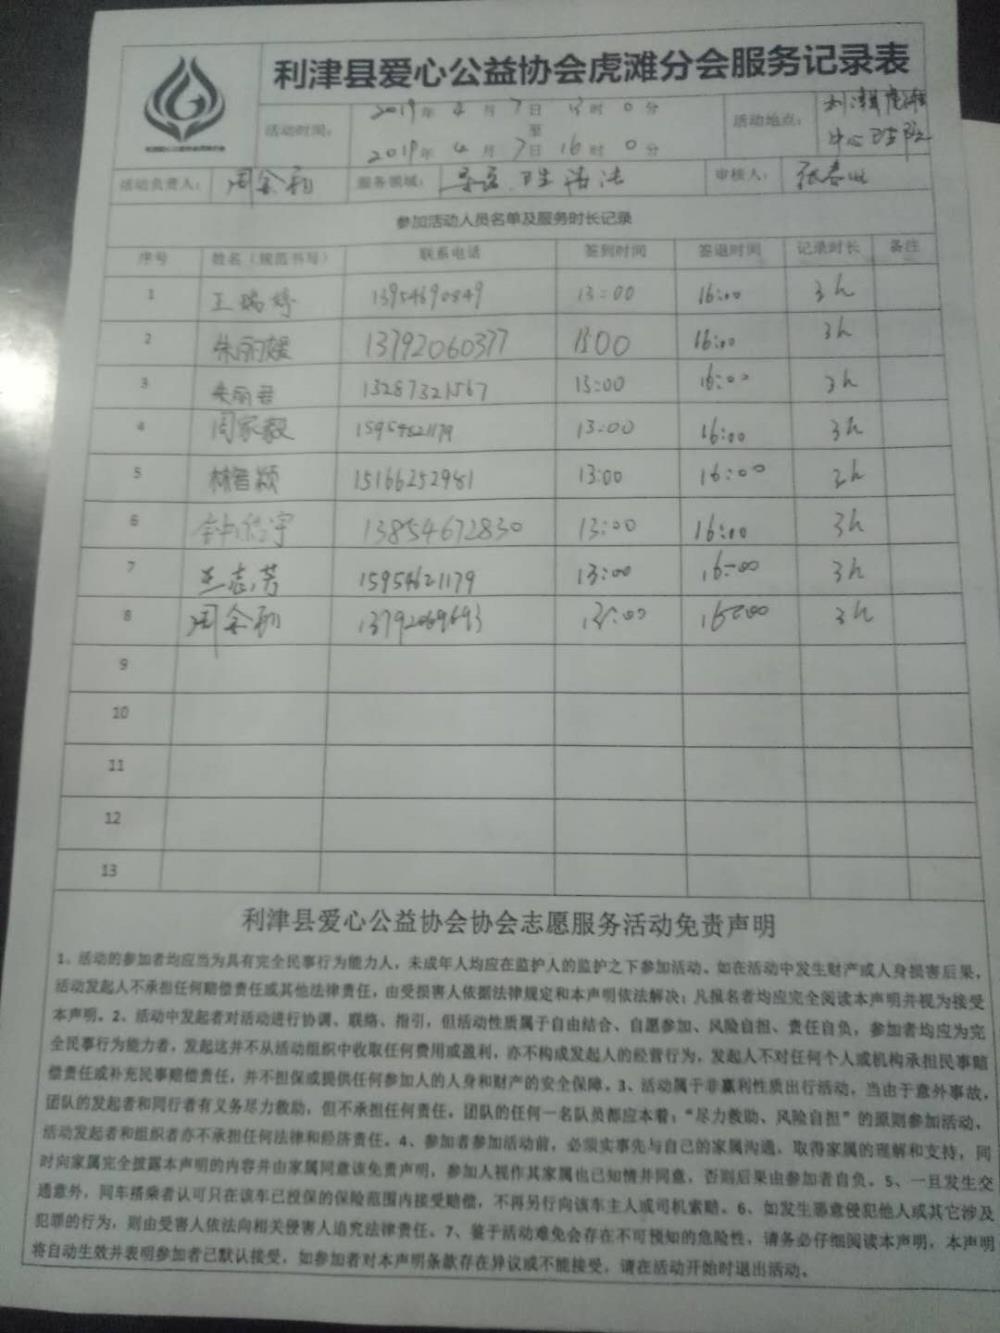 利津县爱心公益协会虎滩分会服务记录表
活动时间：
2019年 4 月 7 日 13 时 0 分
至
2019年 4 月 7 日 16 时 0 分
活动地点：
利津县虎滩
中心卫生院
活动负责人： 服务领域： 审核人：
参加活动人员名单及服务时长记录
序号 姓名（规范书写） 联系电话 签到时间 签退时间 记录时长 备注
1 王瑞婷 13954690849 13:00 16:00 3h
2 朱丽媛 13792060377 13:00 16:00 3h
3 朱丽君 13287321567 13:00 16:00 3h
4 周家毅 15954621179 13:00 16:00 3h
5 林智颖 15166252981 13:00 16:00 3h
6 13854672830 13:00 16:00 3h
7 王志芳 15954621179 13:00 16:00 3h
8 13792069693 13:00 16:00 3h
9
10
11
12
13
利津县爱心公益协会协会志愿服务活动免责声明
1、活动的参加者均应当为具有完全民事行为能力人，未成年人均应在监护人的监护之下参加活动。如在活动中发生财产或人身损害后果，
活动发起人不承担任何赔偿责任或其他法律责任，由受损害人依据法律规定和本声明依法解决；凡报名者均应完全阅读本声明并视为接受
本声明。2、活动中发起者对活动进行协调、联络、指引，但活动性质属于自由结合、自愿参加、风险自担、责任自负，参加者均应为完
全民事行为能力者，发起这并不从活动组织中收取任何费用或盈利，亦不构成发起人的经营行为，发起人不对任何个人或机构承担民事赔
偿责任或补充民事赔偿责任，并不担保或提供任何参加人的人身和财产的安全保障。3、活动属于非赢利性质出行活动，当由于意外事故，
团队的发起者和同行者有义务尽力救助，但不承担任何责任。团队的任何一名队员都应本着：“尽力救助、风险自担”的原则参加活动，
活动发起者和组织者亦不承担任何法律和经济责任。4、参加者参加活动前，必须实事先与自己的家属沟通，取得家属的理解和支持，同
时向家属完全披露本声明的内容并由家属同意该免责声明，参加人视作其家属也已知情并同意，否则后果由参加者自负。5、一旦发生交
通意外，同车搭乘者认可只在该车已投保的保险范围内接受赔偿，不再另行向该车主人或司机索赔。6、如发生恶意侵犯他人或其它涉及
犯罪的行为，则由受害人依法向相关侵害人追究法律责任。7、鉴于活动难免会存在不可预知的危险性，请务必仔细阅读本声明，本声明
将自动生效并表明参加者已默认接受，如参加者对本声明条款存在异议或不能接受，请在活动开始时退出活动。